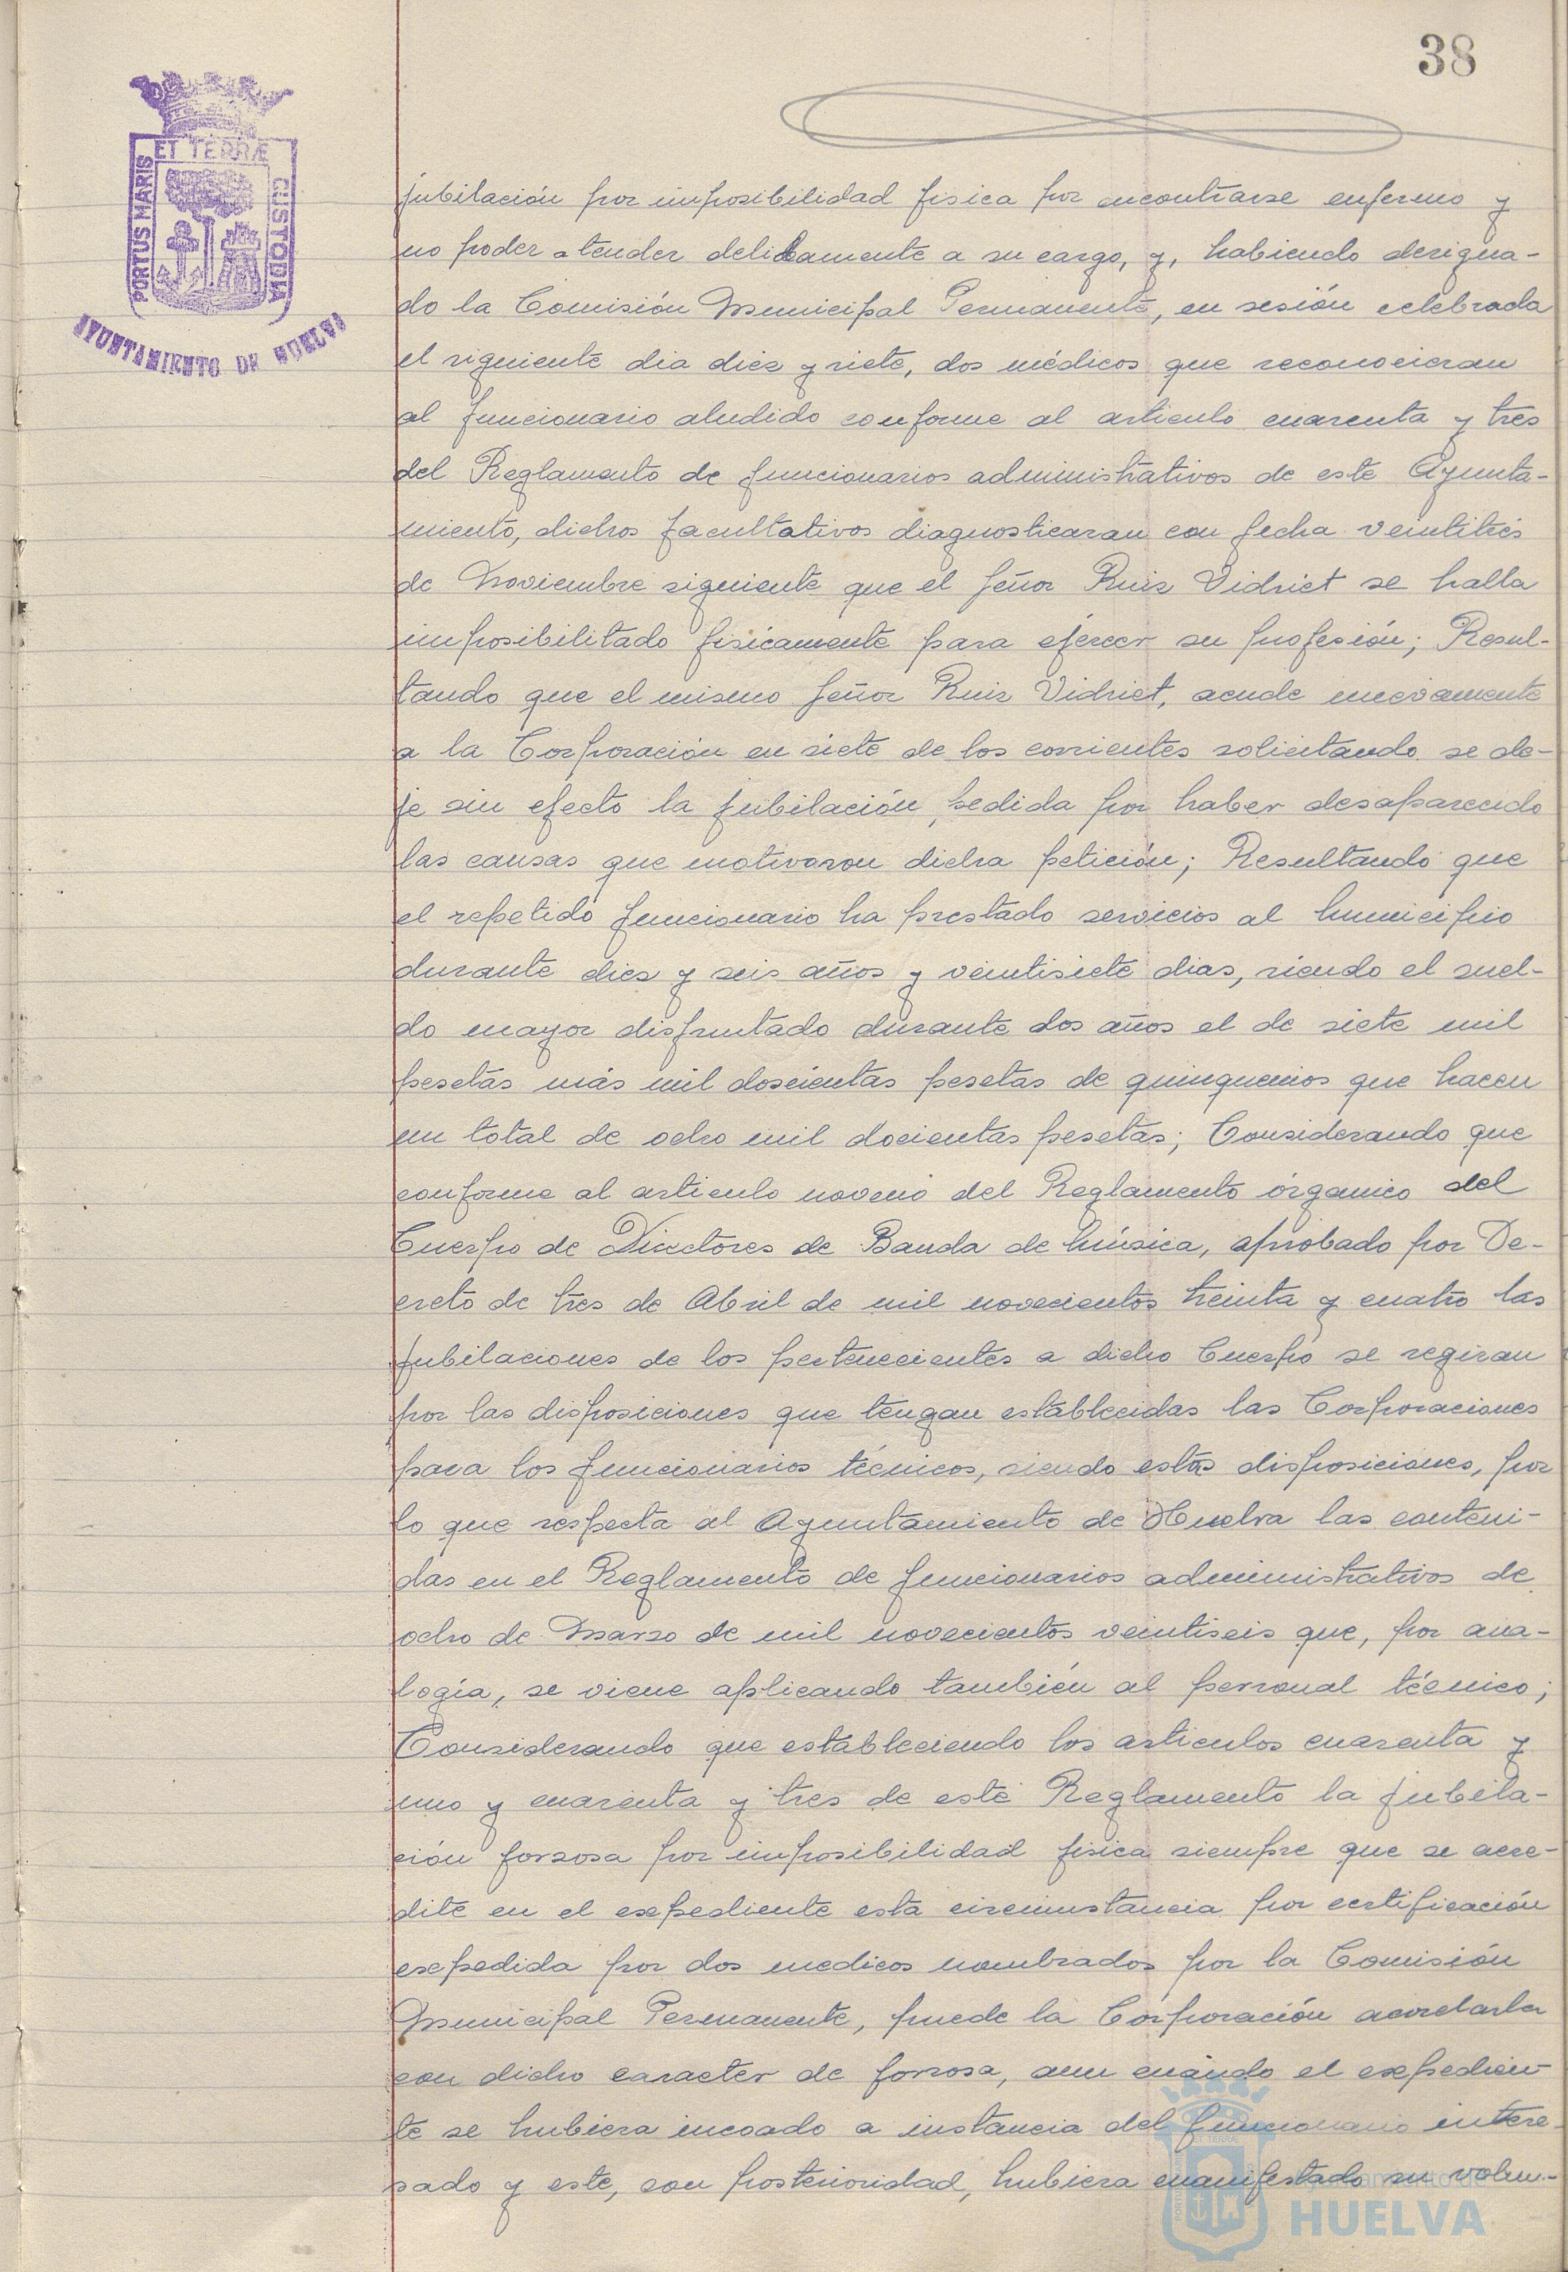 38
ET TERRÆ
PORTUS MARIS
CUSTODIA
AYUNTAMIENTO DE HUELVA
jubilación por imposibilidad fisica por encontrarse enfermo y
no poder atender debidamente a su cargo, y, habiendo designa-
do la Comisión Municipal Permanente, en sesión celebrada
el siguiente dia diez y siete, dos médicos que reconocieran
al funcionario aludido conforme al articulo cuarenta y tres
del Reglamento de funcionarios administrativos de este Ayunta-
miento, dichos facultativos diagnosticaran con fecha veintitrés
de Noviembre siguiente que el señor Ruiz Vidriet se halla
imposibilitado fisicamente para ejercer su profesión; Resul-
tando que el mismo señor Ruiz Vidriet, acude nuevamente
a la Corporación en siete de los corrientes solicitando se de-
je sin efecto la jubilación pedida por haber desaparecido
las causas que motivaron dicha petición; Resultando que
el repetido funcionario ha prestado servicios al municipio
durante diez y seis años y veintisiete dias, siendo el suel-
do mayor disfrutado durante dos años el de siete mil
pesetas más mil doscientas pesetas de quinquenios que hacen
un total de ocho mil docientas pesetas; Considerando que
conforme al articulo noveno del Reglamento órganico del
Cuerpo de Directores de Banda de música, aprobado por De-
creto de tres de Abril de mil novecientos treinta y cuatro las
jubilaciones de los pertenecientes a dicho Cuerpo se regiran
por las disposiciones que tengan establecidas las Corporaciones
para los funcionarios técnicos, siendo estas disposiciones, por
lo que respecta al Ayuntamiento de Huelva las conteni-
das en el Reglamento de funcionarios administrativos de
ocho de Marzo de mil novecientos veintiseis que, por ana-
logía, se viene aplicando también al personal técnico;
Considerando que estableciendo los articulos cuarenta y
uno y cuarenta y tres de este Reglamento la jubila-
ción forzosa por imposibilidad fisica siempre que se acre-
dite en el expediente esta circunstancia por certificación
expedida por dos medicos nombrados por la Comisión
Municipal Permanente, puede la Corporación acordarla
con dicho caracter de forzosa, aun cuándo el expedien-
te se hubiera incoado a instancia del funcionario intere-
sado y este, con posterioridad, hubiera manifestado su volun-
Ayuntamiento de
HUELVA